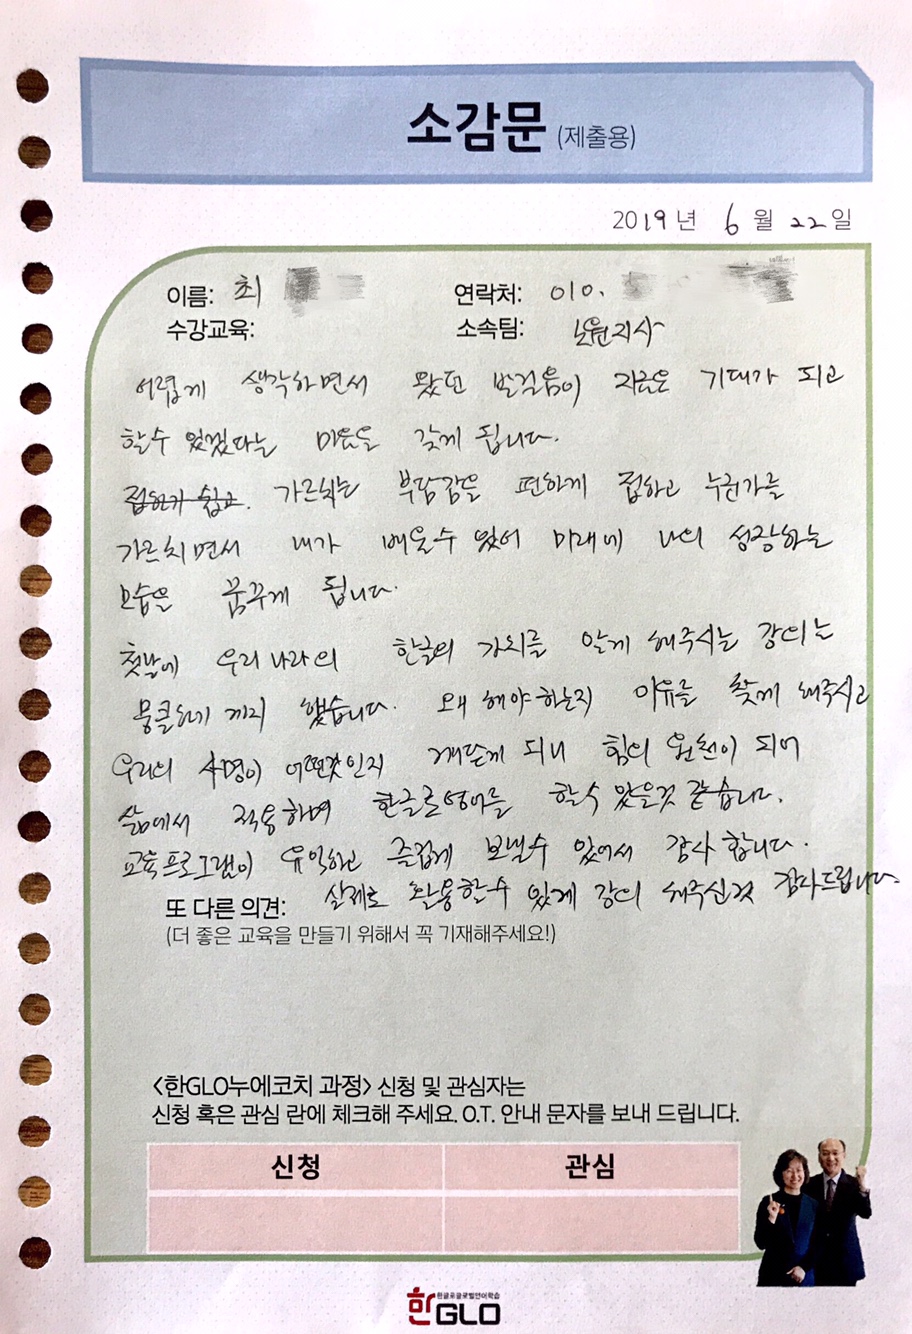 소감문 (제출용)
2019년 6월 22일
이름: 최
연락처: 010.
수강교육:
소속팀: 노원지사
어렵게 생각하면서 왔던 발걸음이 지금은 기대가 되고
할수 있겠다는 마음을 갖게 됩니다.
접하기 쉽고. 가르치는 부담감을 편하게 접하고 누군가를
가르치면서 내가 배울수 있어 미래에 나의 성장하는
모습을 꿈꾸게 됩니다.
첫날에 우리나라의 한글의 가치를 알게 해주시는 강의는
뭉클하게 까지 했습니다. 왜 해야하는지 이유를 찾게 해주시고
우리의 사명이 어떤것인지 깨닫게 되니 힘의 원천이 되어
삶에서 적용하며 한글로영어를 할수 있을것 같습니다.
교육프로그램이 유익하고 즐겁게 보낼수 있어서 감사합니다.
실제로 활용할수 있게 강의 해주신것 감사드립니다.
또 다른 의견:
(더 좋은 교육을 만들기 위해서 꼭 기재해주세요!)
<한GLO누에코치 과정> 신청 및 관심자는
신청 혹은 관심 란에 체크해 주세요. O.T. 안내 문자를 보내 드립니다.
신청 관심
한글로글로벌언어학습
한GLO